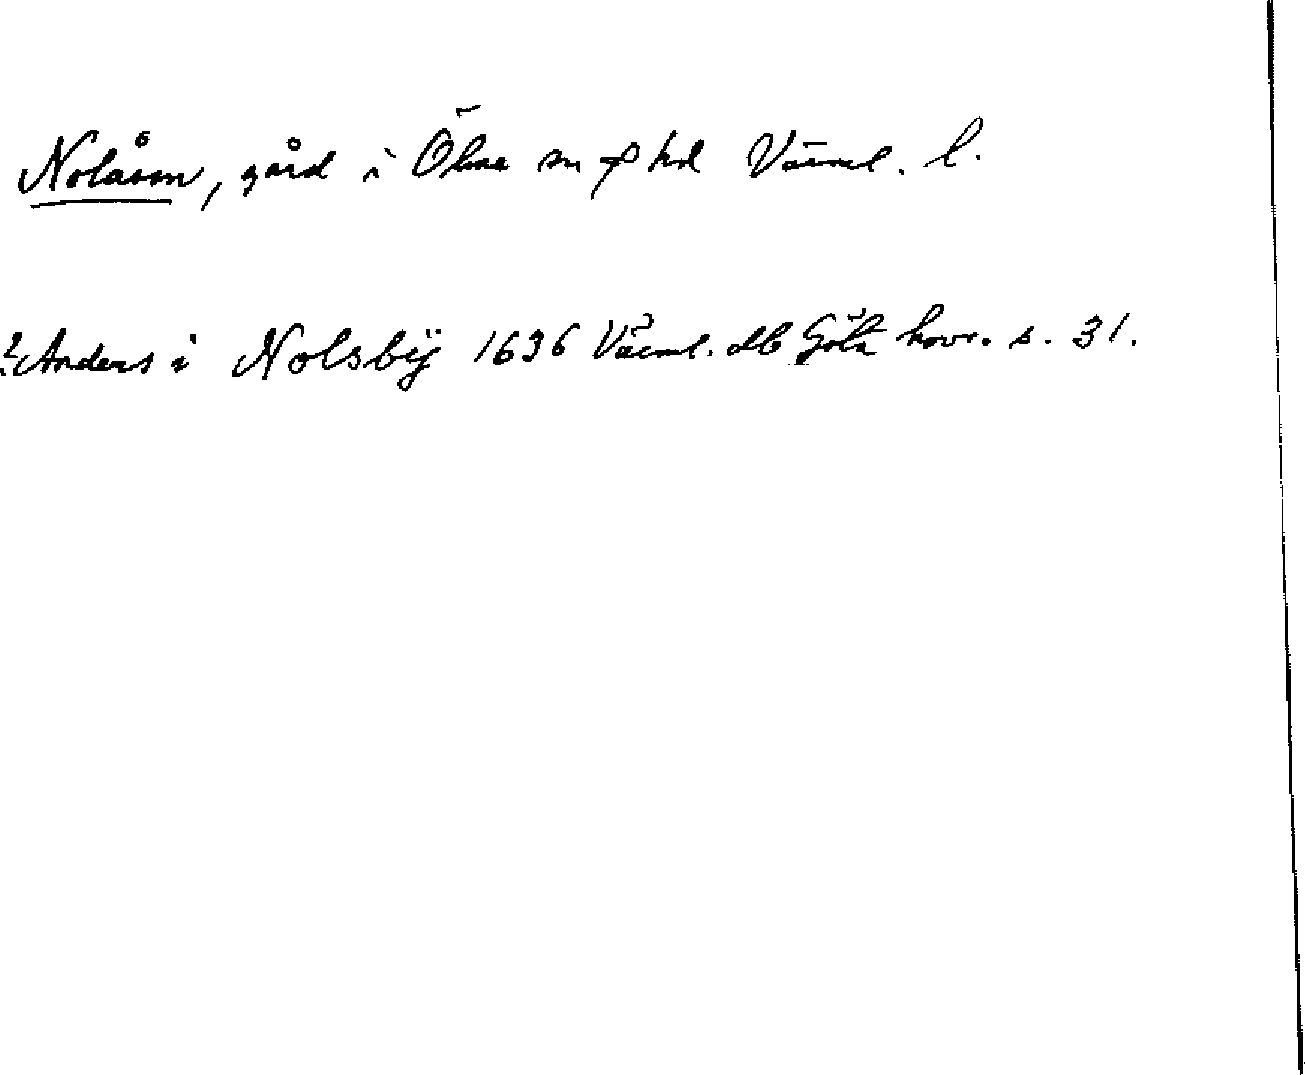 Nolåsen, gård i Ölme sn o hd Värml. l.
? Anders i Nolsbÿ 1636 Värml. db Göta hovr. s. 31.